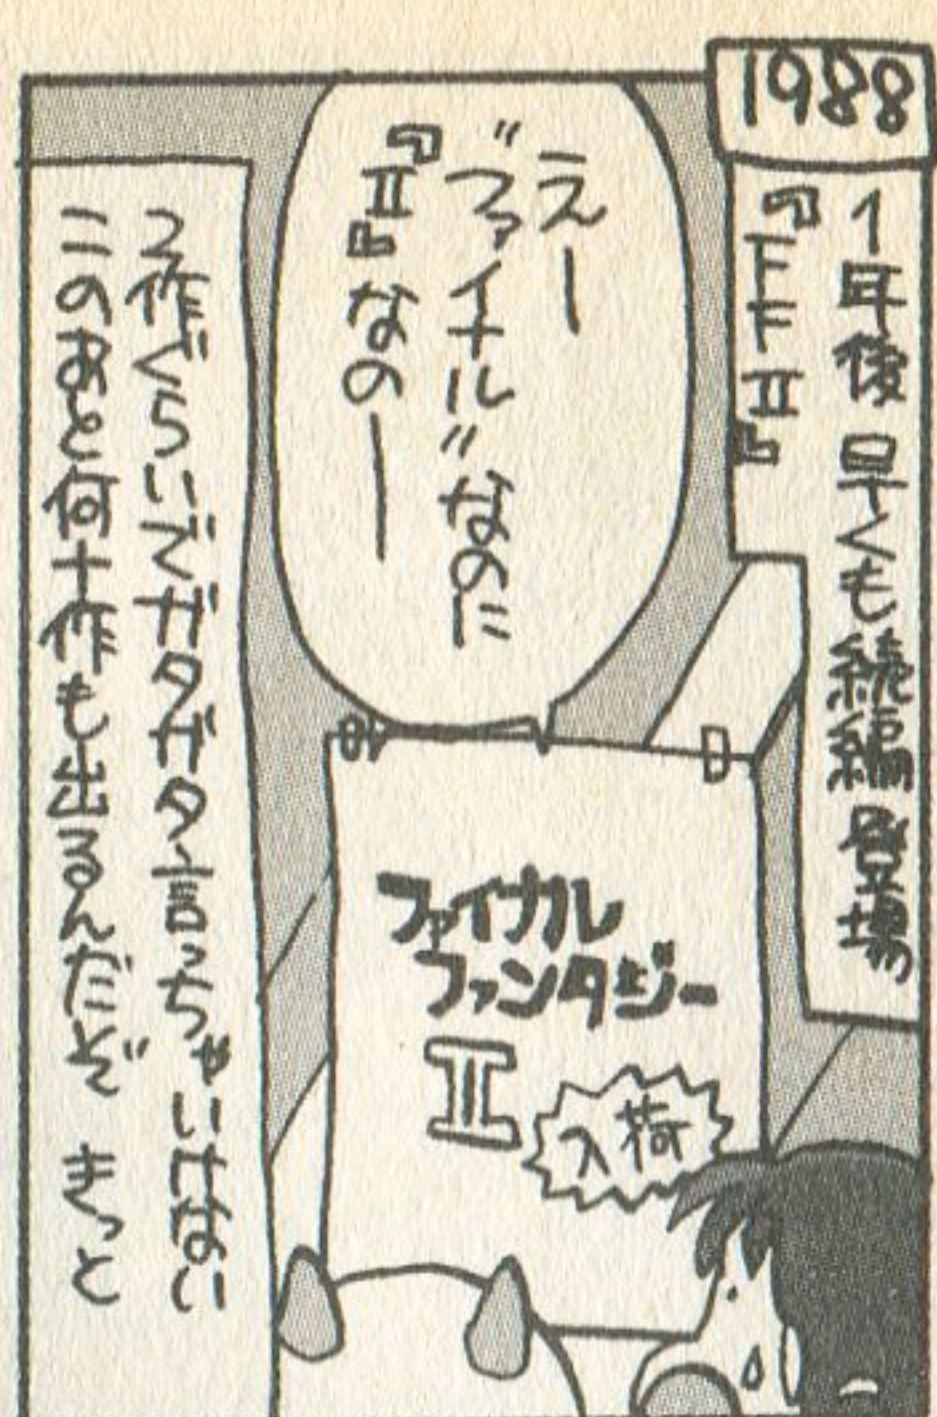 1988
1年後 早くも続編登場
『FFⅡ』
えー
"ファイナル"なのに
『Ⅱ』なのー
ファイナル
ファンタジー
Ⅱ
入荷
2作ぐらいでガタガタ言っちゃいけない
このあと何十作も出るんだぞ きっと